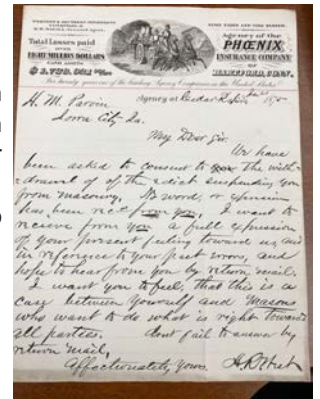 WESTERN & SOUTHERN DEPARTMENT
Total Losses paid
OVER
EIGHT MILLION DOLLARS
CASH ASSETS
Agency of the
PHŒNIX
INSURANCE COMPANY
OF
HARTFORD, CONN.
H. M. Parvin
Agency at Cedar Rapids
Iowa City Ia.
My Dear Sir.
We have
been asked to consent to the with-
drawal of the edict suspending you
from masonry. No word, or expression
has been rec'd from you, I want to
receive from you a full expression
of your present feeling toward us, and
in reference to your past wrongs, and
hope to hear from you by return mail.
I want you to feel, that this is a
case between yourself and Masons
who want to do what is right towards
all parties. dont fail to answer by
return mail,
Affectionately Yours.